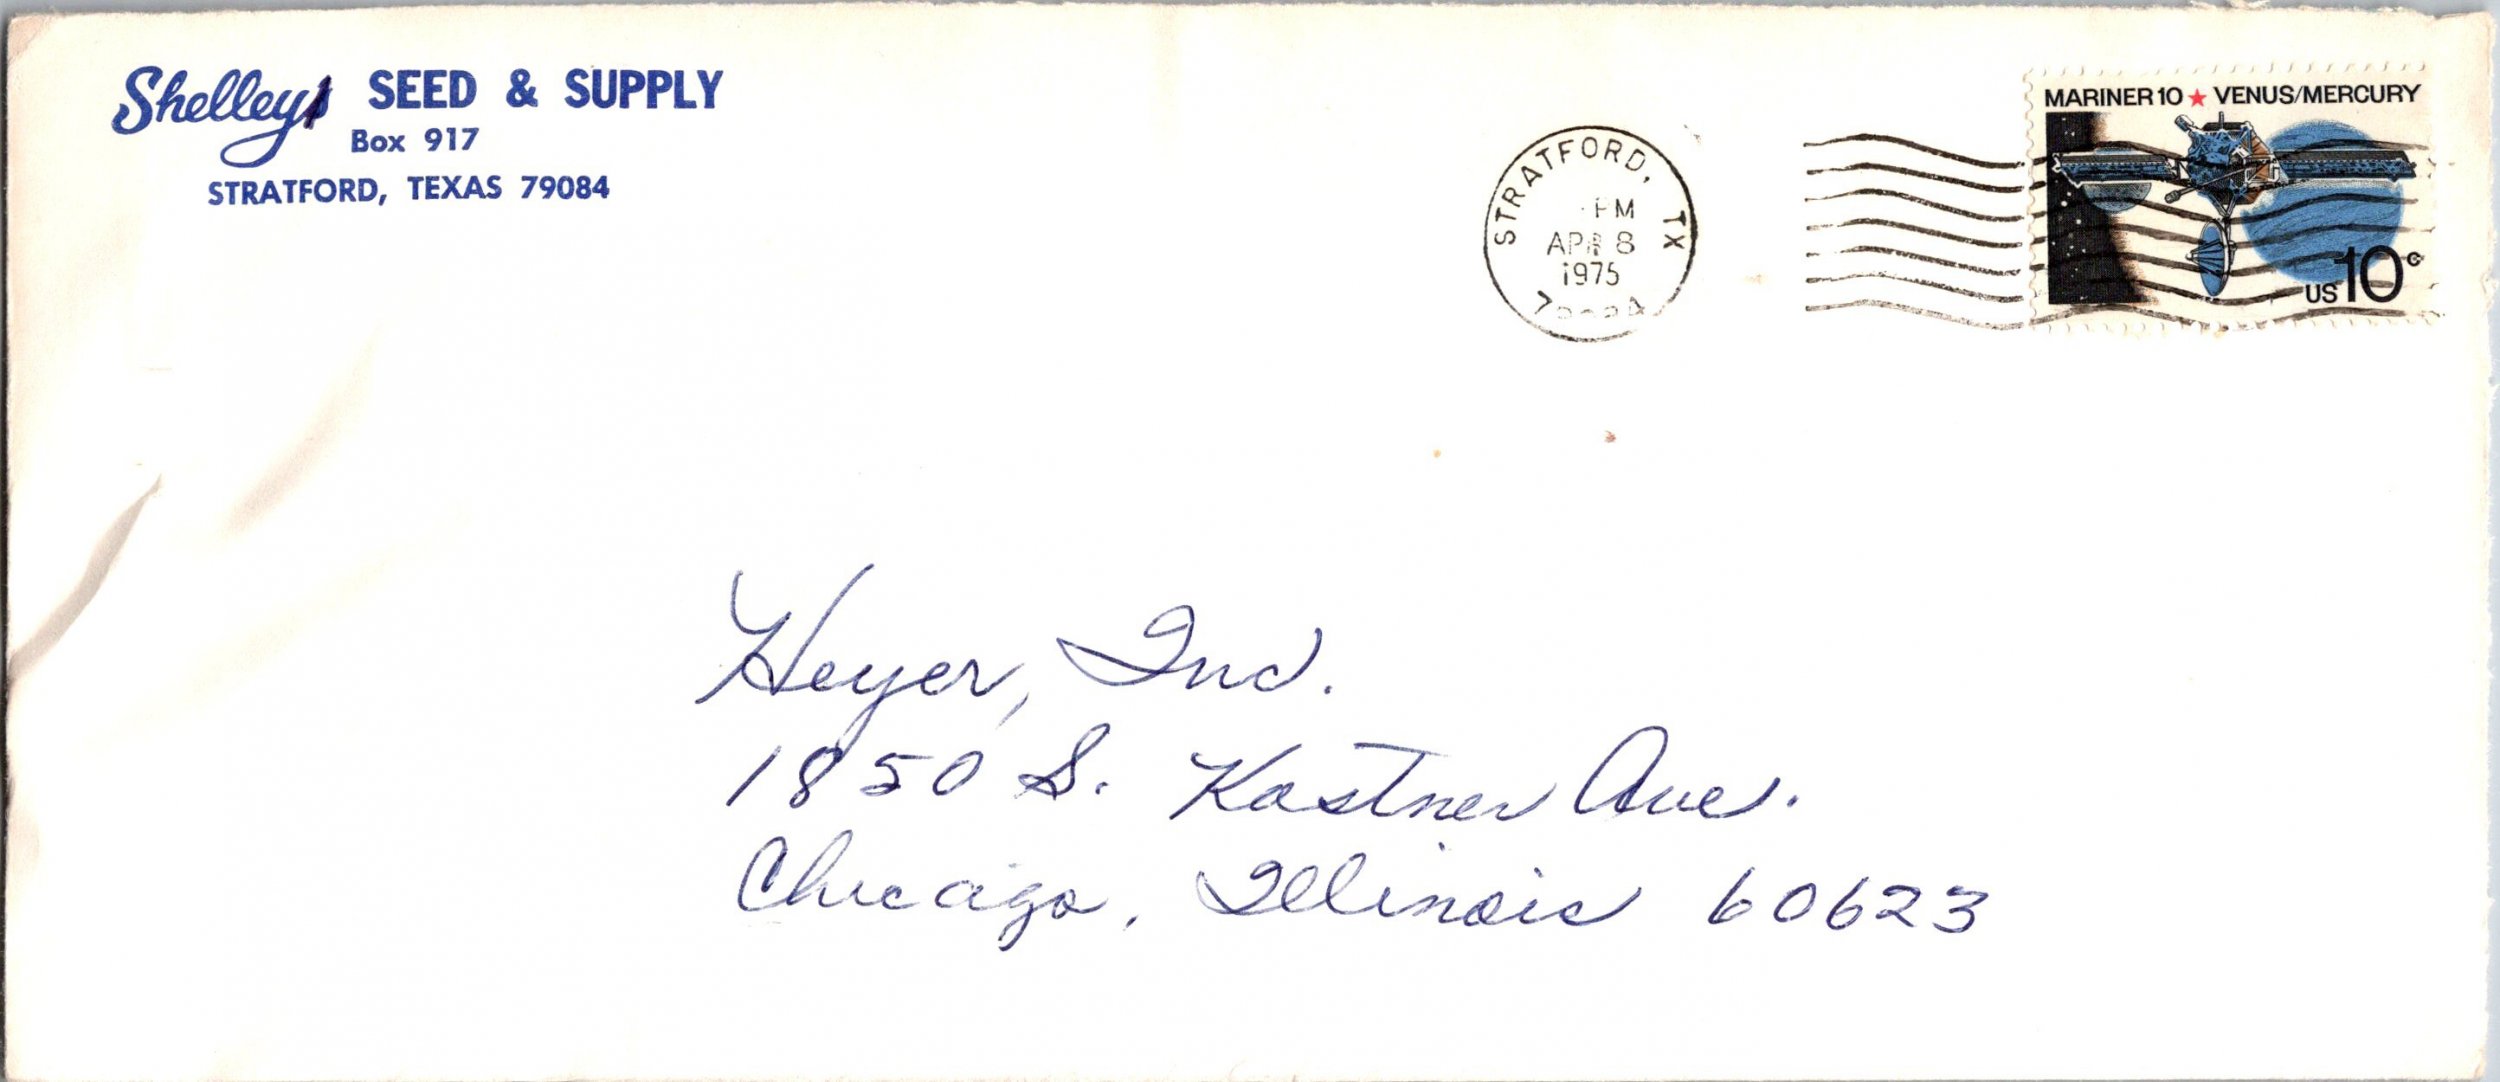 Shelley's SEED & SUPPLY
Box 917
STRATFORD, TEXAS 79084
STRATFORD, TX
PM
APR 8
1975
MARINER 10 ★ VENUS/MERCURY
US 10c
Heyer, Inc.
1850 S. Kostner Ave.
Chicago, Illinois 60623